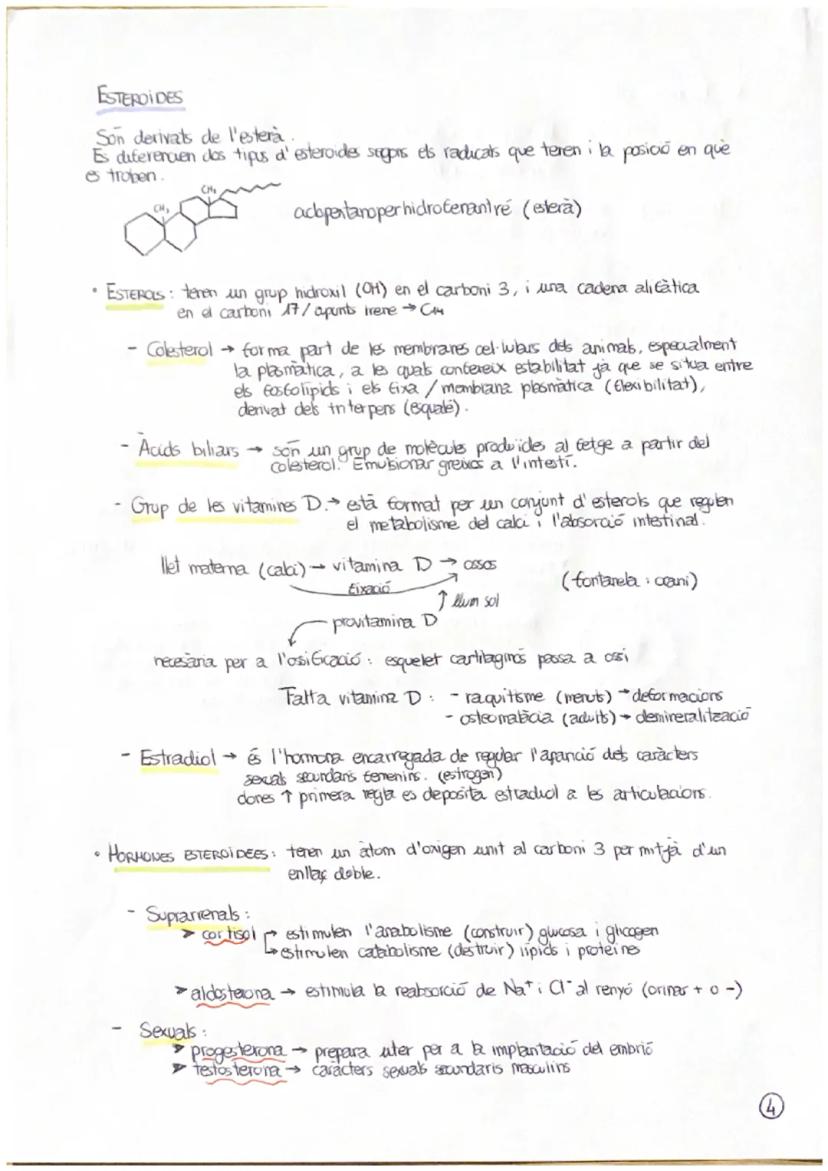 ESTEROIDES
Són derivats de l'esterà.
Es diferencien dos tipus d'esteroides segons els radicals que tenen i la posició en què
es troben.
CH₃
CH₃
ciclopentanoperhidrofenantré (esterà)
• ESTEROLS: tenen un grup hidroxil (OH) en el carboni 3, i una cadena alifàtica
en el carboni 17/ apunts Irene → C14
- Colesterol → forma part de les membranes cel·lulars dels animals, especialment
la plasmàtica, a les quals confereix estabilitat ja que se situa entre
els fosfolípids i els fixa / membrana plasmàtica (flexibilitat),
derivat dels triterpens (esqualè).
- Àcids biliars → són un grup de molècules produïdes al fetge a partir del
colesterol. Emulsionar greixos a l'intestí.
- Grup de les vitamines D. → està format per un conjunt d'esterols que regulen
el metabolisme del calci i l'absorció intestinal.
llet materna (calci) → vitamina D → ossos
fixació
(fontanela : crani)
↑ llum sol
provitamina D
necesària per a l'osificació : esquelet cartilaginós passa a ossi
Falta vitamina D : - raquitisme (menuts) → deformacions
- osteomalàcia (adults) → desmineralització
- Estradiol → és l'hormona encarregada de regular l'aparició dels caràcters
sexuals secundaris femenins. (estrogen)
dones ↑ primera regla es deposita estradiol a les articulacions.
• HORMONES ESTEROIDEES: tenen un àtom d'oxigen unit al carboni 3 per mitjà d'un
enllaç doble.
- Suprarrenals :
➤ cortisol → estimulen l'anabolisme (construir) glucosa i glicogen
→ estimulen catabolisme (destruir) lípids i proteïnes
➤ aldosterona → estimula la reabsorció de Na⁺ i Cl⁻ al renyó (orinar + o -)
- Sexuals :
➤ progesterona → prepara úter per a la implantació del embrió
➤ testosterona → caràcters sexuals secundaris masculins
4